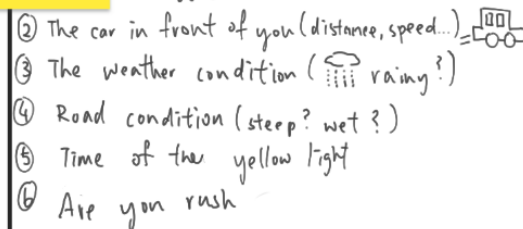 ② The car in front of you (distance, speed...)
③ The weather condition ( rainy?)
④ Road condition (steep? wet?)
⑤ Time of the yellow light
⑥ Are you rush